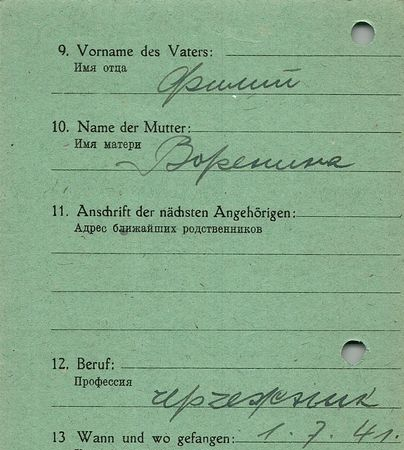 9. Vorname des Vaters:
Имя отца
Филип
10. Name der Mutter:
Имя матери
Воренина
11. Anschrift der nächsten Angehörigen:
Адрес ближайших родственников
12. Beruf:
Профессия
13 Wann und wo gefangen: 1. 7. 41.